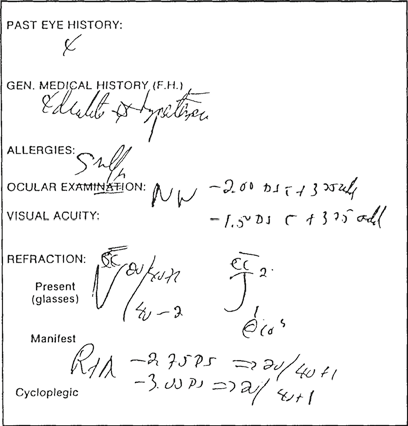 PAST EYE HISTORY:
GEN. MEDICAL HISTORY (F.H.)
ALLERGIES: Sulfa
OCULAR EXAMINATION: NW -2.00 DS c̄ +325 add
VISUAL ACUITY: -1.50 DS c̄ +325 add
REFRACTION: cc cc
Present (glasses) V 20/40+2 J 2
/40-2 @ 10"
Manifest
R+A -2.75 DS => 20/40+1
-3.00 DS => 20/40+1
Cycloplegic